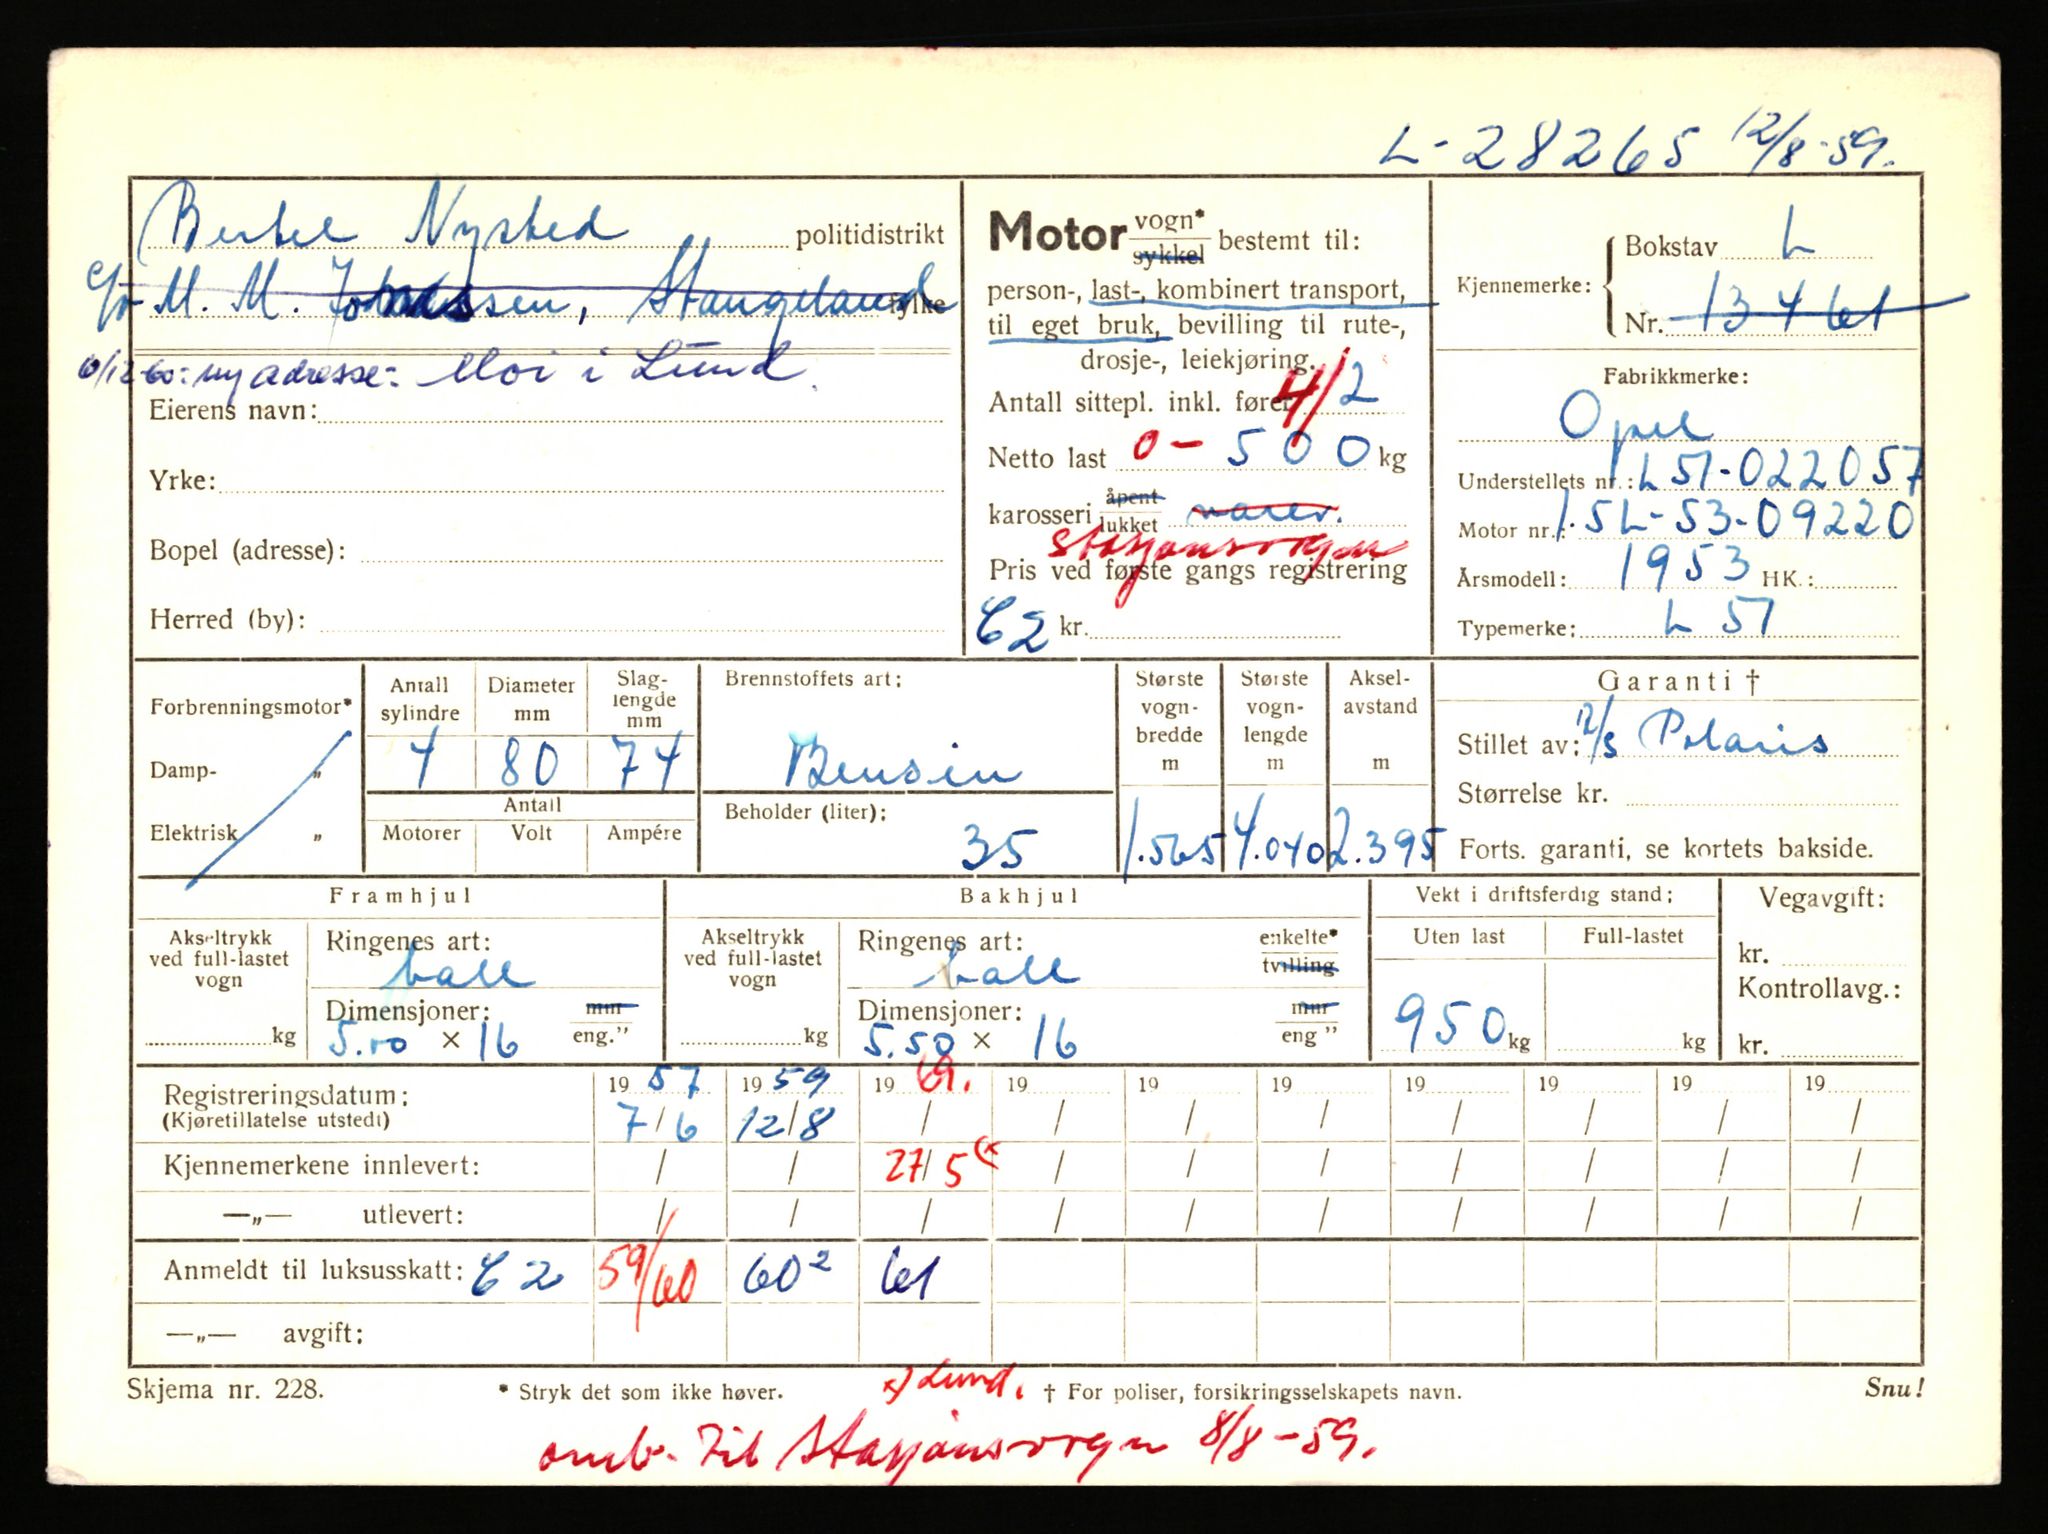 L-28265 12/8-59.
Bertel Nysted politidistrikt
c/o M. M. Johnsen, Stangeland fylke
10/12-60: ny adresse: Moi i Lund.
Eierens navn:
Yrke:
Bopel (adresse):
Herred (by):
Motor vogn* sykkel bestemt til:
person-, last-, kombinert transport,
til eget bruk, bevilling til rute-,
drosje-, leiekjøring.
Antall sittepl. inkl. fører 4/2
Netto last 0 - 500 kg
karosseri åpent lukket varev.
Stasjonsvogn
Pris ved første gangs registrering
C2 kr.
Kjennemerke: Bokstav L
Nr. 13461
Fabrikkmerke:
Opel
Understellets nr.: L51-022057
Motor nr.: 1.5L-53-09220
Årsmodell: 1953 HK.:
Typemerke: L 51
Forbrenningsmotor*
Damp- „
Elektrisk „
Antall sylindre 4
Diameter mm 80
Slag-lengde mm 74
Antall
Motorer Volt Ampére
Brennstoffets art:
Bensin
Beholder (liter):
35
Største vogn-bredde m 1.565
Største vogn-lengde m 4.040
Aksel-avstand m 2.395
Garanti †
Stillet av: 12/8 Polaris
Størrelse kr.
Forts. garanti, se kortets bakside.
Framhjul
Akseltrykk ved full-lastet vogn
kg
Ringenes art:
ball
Dimensjoner: mm
5.00 × 16 eng.”
Bakhjul
Akseltrykk ved full-lastet vogn
kg
Ringenes art: enkelte*
ball tvilling
Dimensjoner: mm
5.50 × 16 eng ”
Vekt i driftsferdig stand:
Uten last Full-lastet
950 kg kg
Vegavgift:
kr.
Kontrollavg.:
kr.
Registreringsdatum: 19 57 19 59 19 61. 19 19 19 19 19 19 19
(Kjøretillatelse utstedt) 7/6 12/8 / / / / / / / /
Kjennemerkene innlevert: / / 27/5 (x / / / / / / /
—„— utlevert: / / / / / / / / / /
Anmeldt til luksusskatt: C2 59/60 60² 61
—„— avgift:
Skjema nr. 228. * Stryk det som ikke høver. x) Lund. † For poliser, forsikringsselskapets navn. Snu!
omb. til Stasjonsvogn 8/8-59.